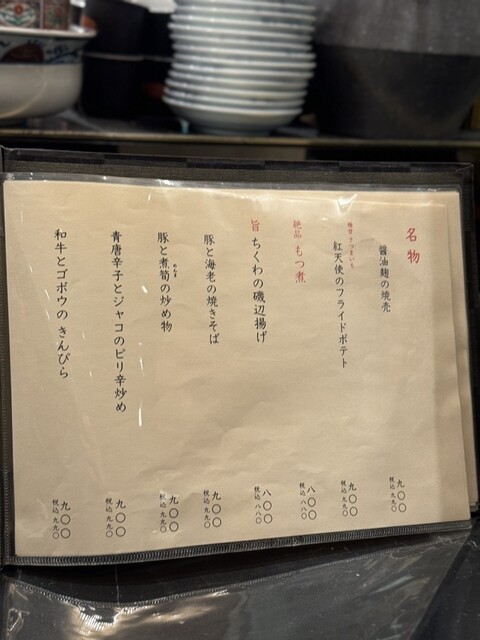 名物
醤油麹の焼売
九〇〇
税込 九九〇
極甘さつまいも
紅天使のフライドポテト
九〇〇
税込 九九〇
絶品 もつ煮
八〇〇
税込 八八〇
旨 ちくわの磯辺揚げ
八〇〇
税込 八八〇
豚と海老の焼きそば
九〇〇
税込 九九〇
豚と煮筍の炒め物
めんま
九〇〇
税込 九九〇
青唐辛子とジャコのピリ辛炒め
九〇〇
税込 九九〇
和牛とゴボウのきんぴら
九〇〇
税込 九九〇